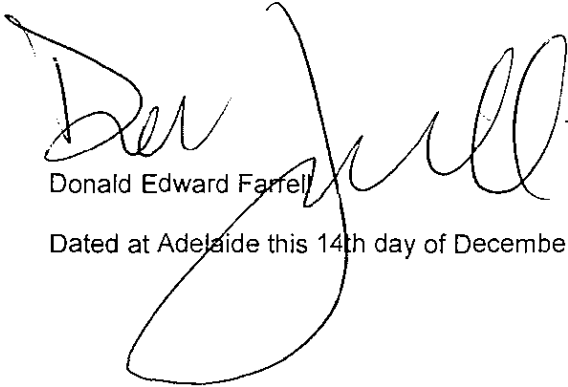 Don Farrell
Donald Edward Farrell
Dated at Adelaide this 14th day of Decembe